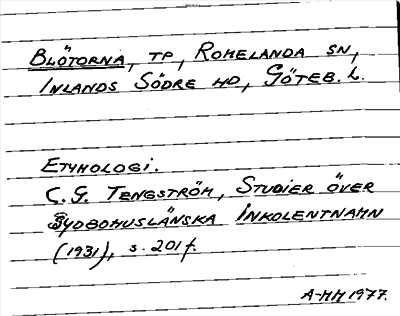 BLÖTORNA, TP, ROMELANDA SN,
INLANDS SÖDRE HD, GÖTEB. L.
ETYMOLOGI.
C. G. TENGSTRÖM, STUDIER ÖVER
SYDBOHUSLÄNSKA INKOLENTNAMN
(1931), s. 201 f.
A-MH 1977.